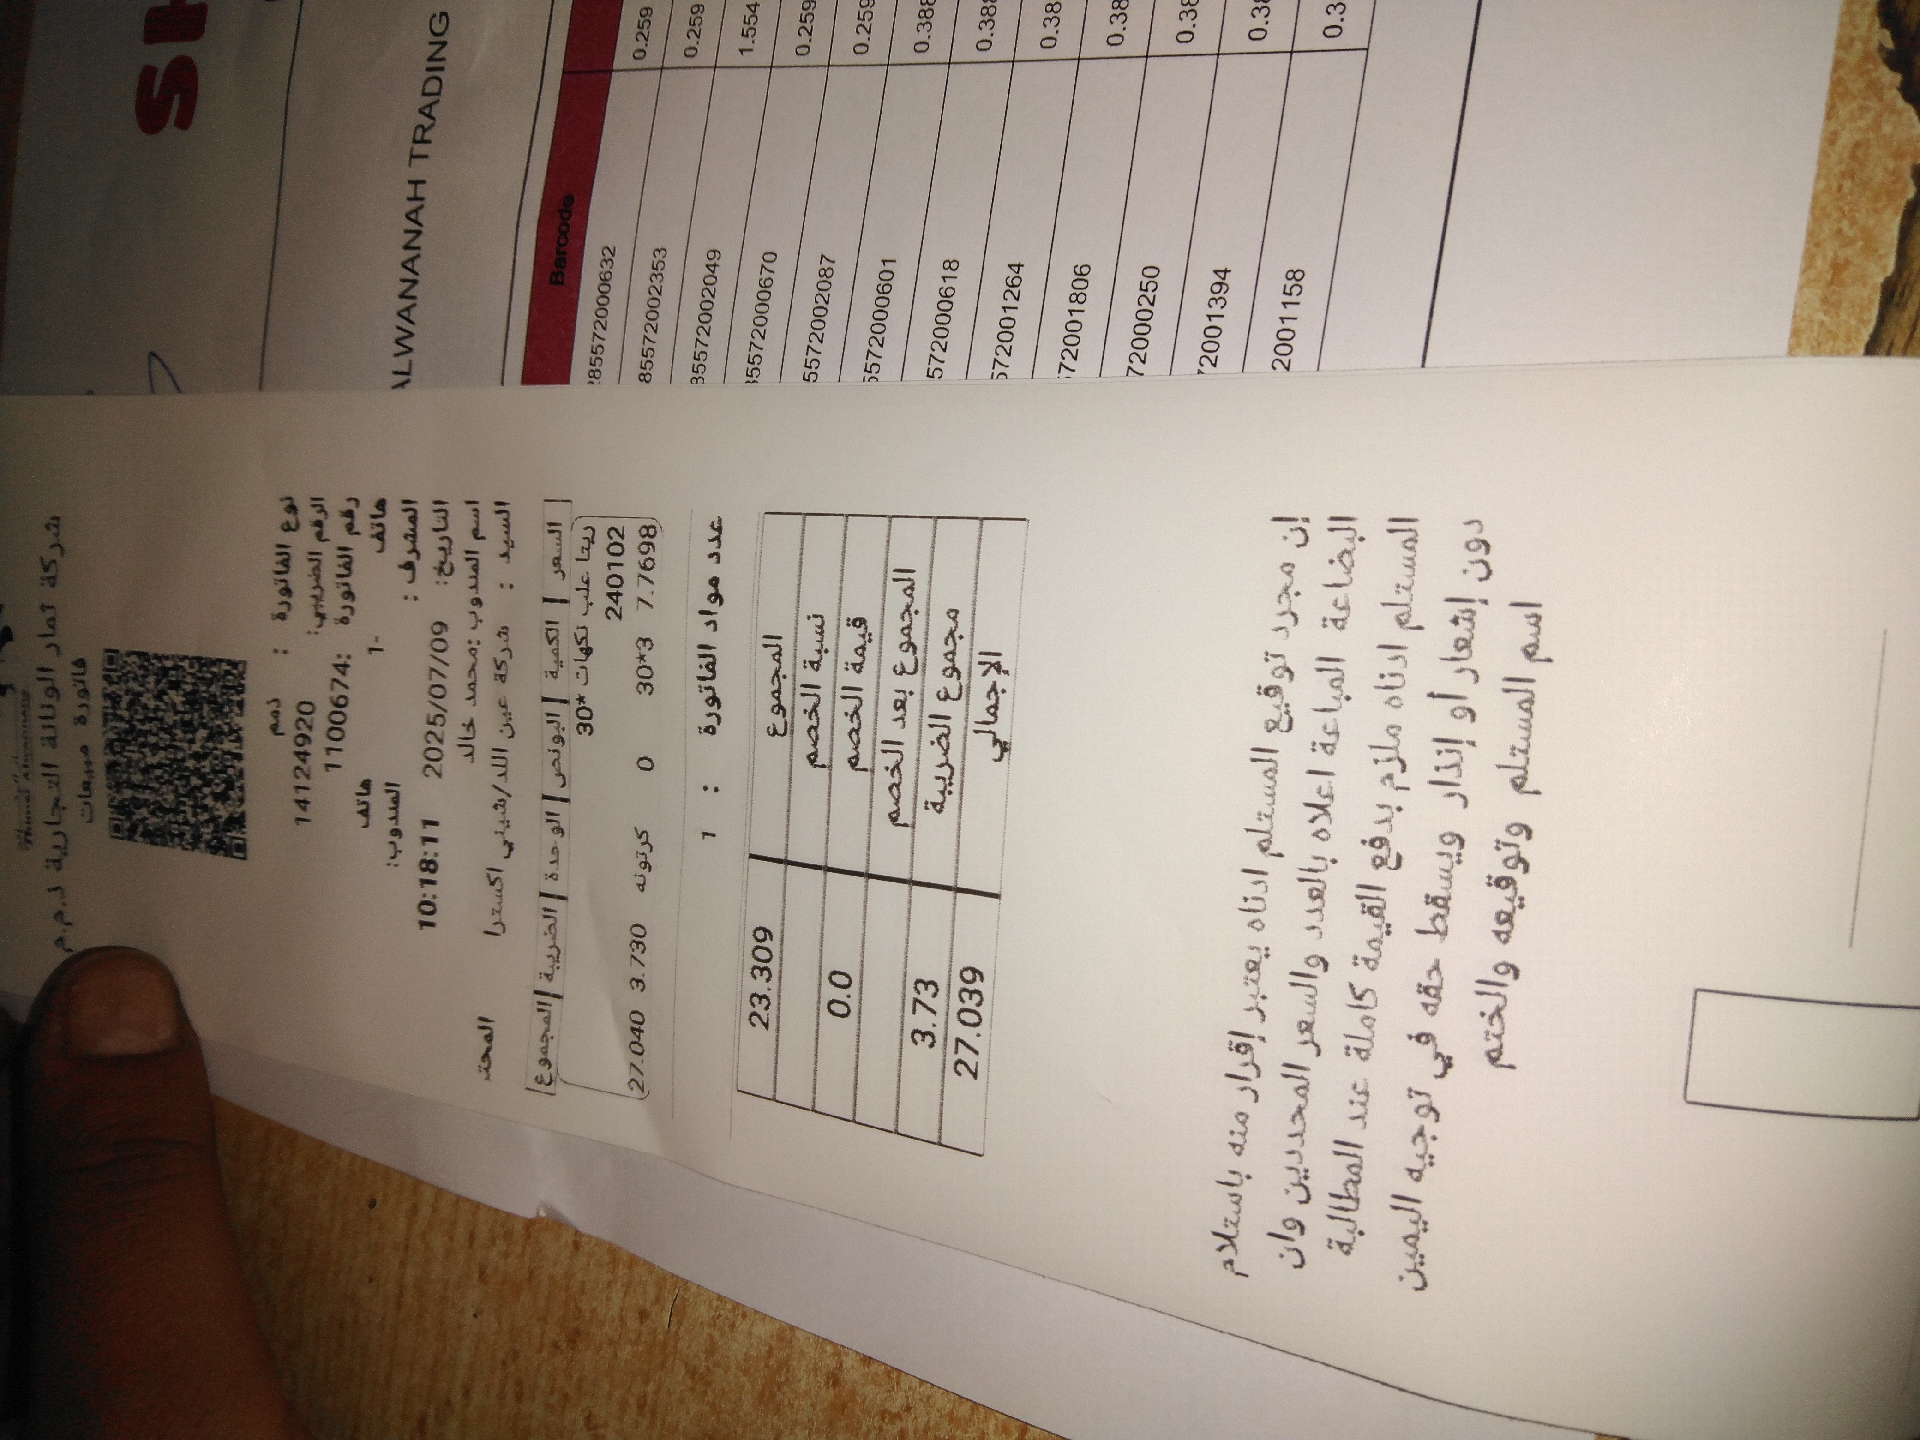 شركة ثمار الونانة التجارية ذ.م.م
فاتورة مبيعات
نوع الفاتورة : ذمم
الرقم الضريبي: 14124920
رقم الفاتورة :11000674
هاتف 1- هاتف
المشرف : المندوب:
التاريخ: 2025/07/09 10:18:11
اسم المندوب :محمد خالد
السيد : شركة عين اللد/شيني اكسترا المحت
السعر | الكمية | البونص | الوحدة | الضريبة | المجموع
ريتا علب نكهات *30
240102
7.7698 30*3 0 كرتونه 3.730 27.040
عدد مواد الفاتورة : 1
المجموع 23.309
نسبة الخصم
قيمة الخصم 0.0
المجموع بعد الخصم
مجموع الضريبة 3.73
الإجمالي 27.039
إن مجرد توقيع المستلم ادناه يعتبر إقرار منه باستلام
البضاعة المباعة اعلاه بالعدد والسعر المحددين وان
المستلم ادناه ملزم بدفع القيمة كاملة عند المطالبة
دون إشعار أو إنذار ويسقط حقه في توجيه اليمين
اسم المستلم وتوقيعه والختم
ALWANANAH TRADING
Barcode
28557200​0632 0.259
85572002353 0.259
85572002049 1.554
5572000670 0.259
5572002087 0.259
5572000601 0.388
572000618 0.388
572001264 0.38
72001806 0.38
72000250 0.38
72001394 0.38
2001158 0.3